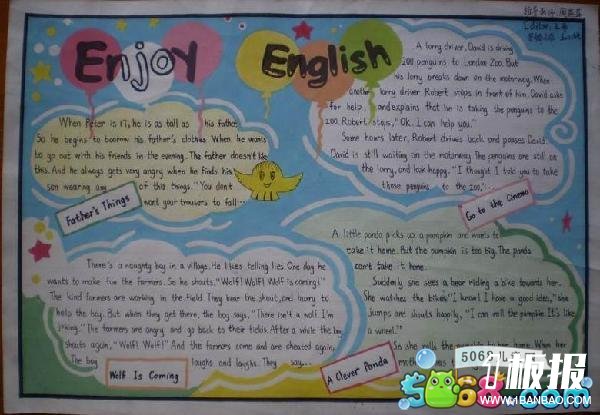 Enjoy English
When Peter is 17, he is as tall as his father.
So he begins to borrow his father's clothes. When he wants
to go out with his friends in the evening. The father doesn't like
this. And he always gets very angry when he finds his
son wearing any of this things. "You don't
want your trousers to fall
Father's Things
A lorry driver, David is driving
200 penguins to London Zoo. But
his lorry breaks down on the motorway. When
another lorry driver Robert stops in front of him. David asks
for help and explains that he is taking the penguins to the
zoo. Robert says, "Ok. I can help you."
Some hours later, Robert drives back and passes David.
David is still waiting on the motorway. The penguins are still on
the lorry, and look happy. "I thought I told you to take
those penguins to the zoo."
Go to the Cinema
There is a naughty boy in a village. He likes telling lies. One day he
wants to make fun the farmers. So he shouts, "Wolf! Wolf! Wolf is coming!"
The kind farmers are working in the field. They hear the shout, and hurry to
help the boy. But when they get there, the boy says, "There isn't a wolf. I'm
joking." The farmers are angry and go back to their fields. After a while the boy
shouts again, "Wolf! Wolf!" And the farmers come and are cheated again.
The boy laughs and laughs. They say...
Wolf Is Coming
A little panda picks up a pumpkin and wants to
take it home. But the pumpkin is too big. The panda
can't take it home.
Suddenly she sees a bear riding a bike towards her.
She watches the bike. "I know! I have a good idea," she
jumps and shouts happily, "I can roll the pumpkin. It's like
a wheel."
So she rolls the pumpkin home. When her
A Clever Panda
5068
板报
WWW.1BANBAO.COM